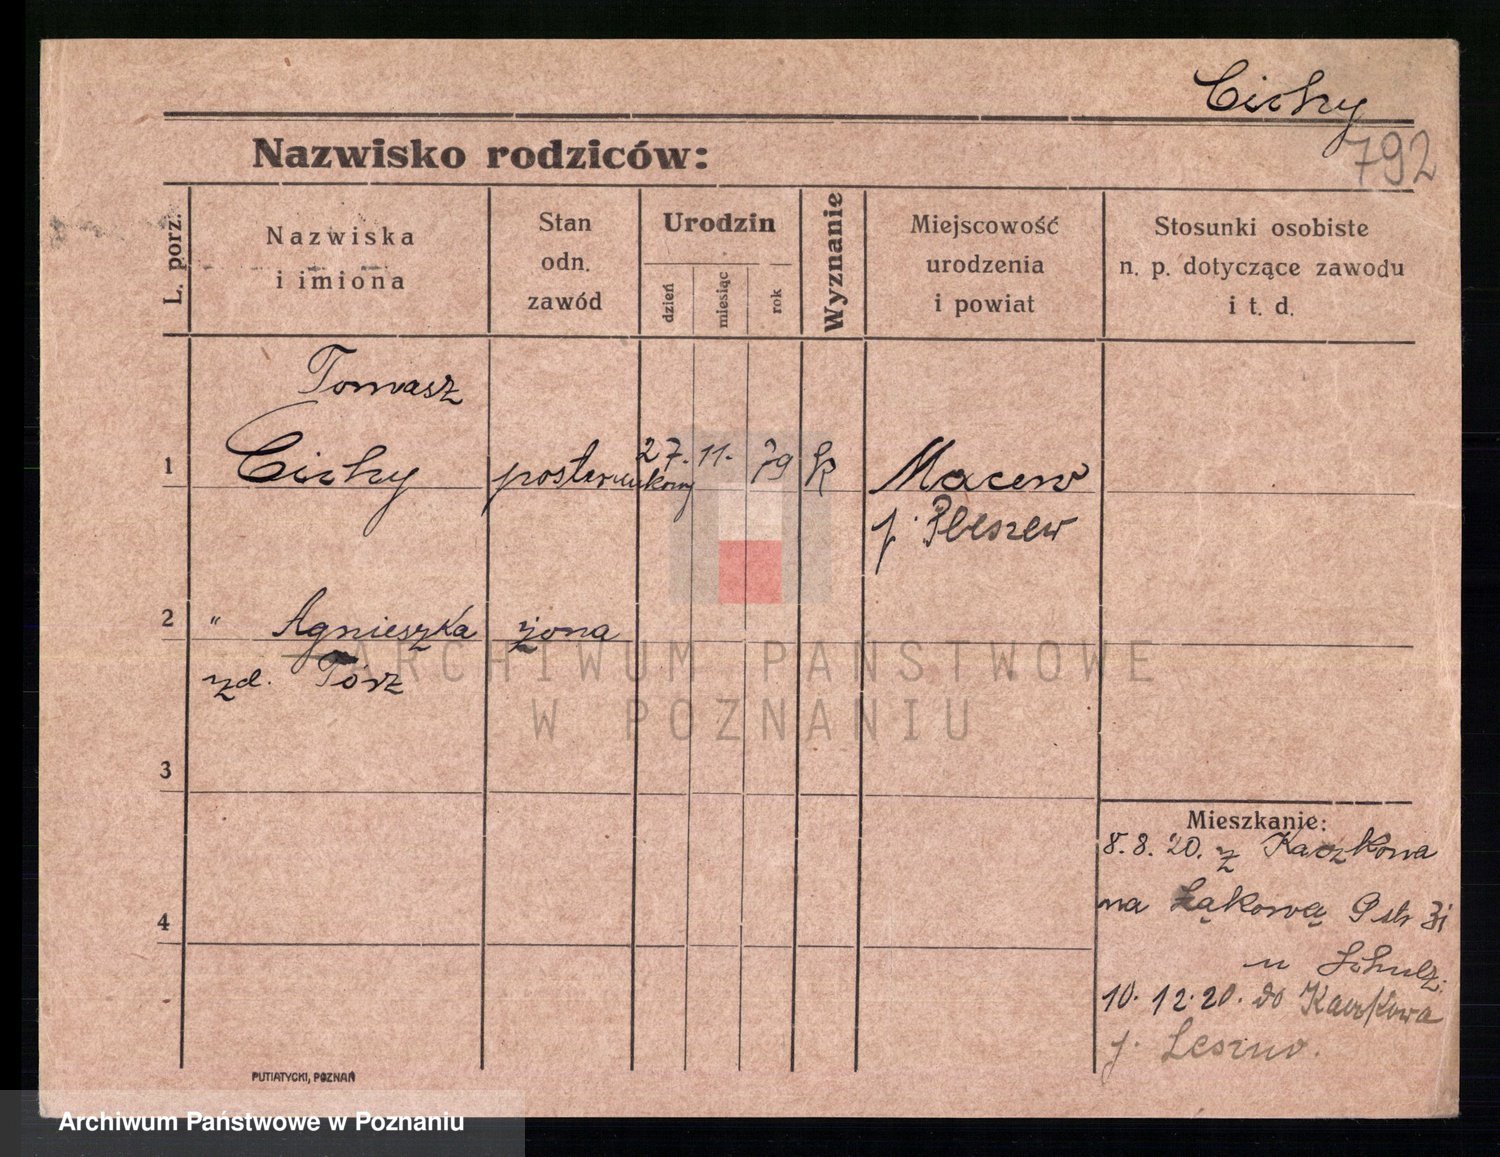 Cichy
792
Nazwisko rodziców:
L. porz.
Nazwiska
i imiona
Stan
odn.
zawód
Urodzin
dzień
miesiąc
rok
Wyznanie
Miejscowość
urodzenia
i powiat
Stosunki osobiste
n. p. dotyczące zawodu
i t. d.
Tomasz
1 Cichy posterunkowy 27. 11. 79 k Macew
p. Pleszew
2 " Agnieszka żona
zd. Torz
3
4
Mieszkanie:
8. 8. 20. z Kaczkowa
na Łąkową 9 str
u Schulz.
10. 12. 20. do Kaczkowa
p. Leszno.
PUTIATYCKI, POZNAŃ
ARCHIWUM PAŃSTWOWE
W POZNANIU
Archiwum Państwowe w Poznaniu